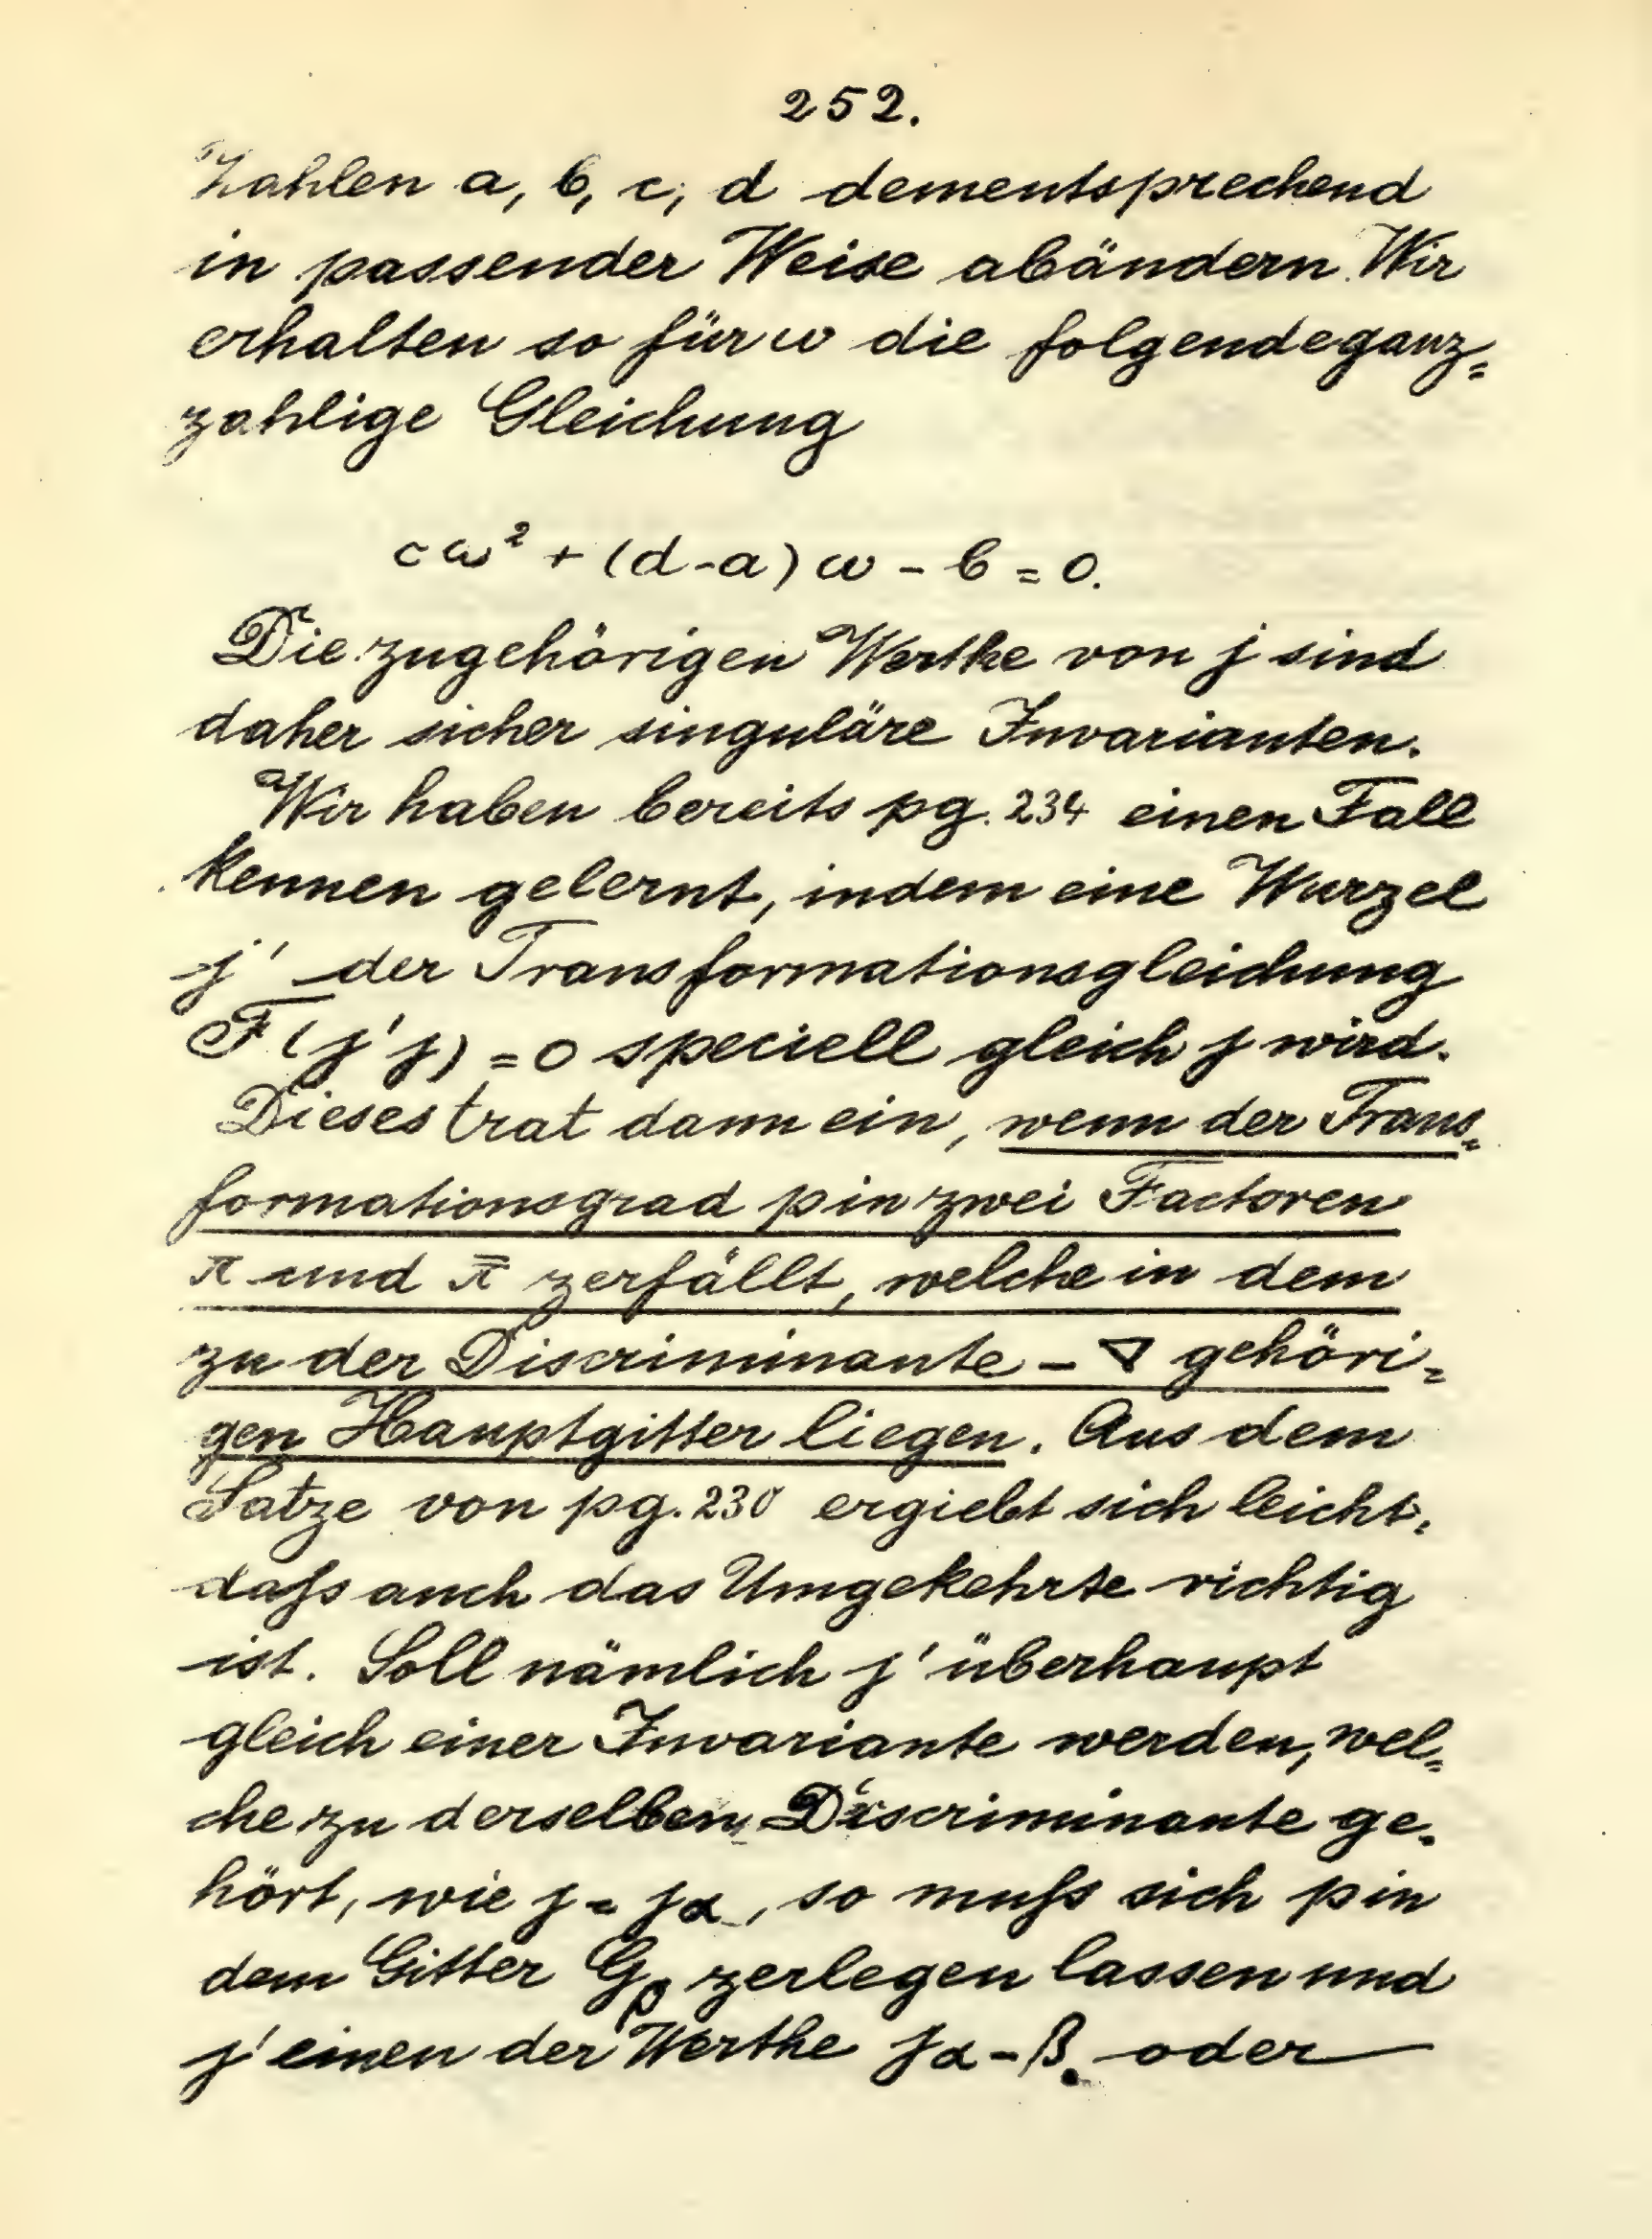 252.
Zahlen a, b, c, d dementsprechend
in passender Weise abändern. Wir
erhalten so für ω die folgende ganz=
zahlige Gleichung
cω² + (d-a) ω - b = 0.
Die zugehörigen Werthe von j sind
daher sicher singuläre Invarianten.
Wir haben bereits pg. 234 einen Fall
kennen gelernt, indem eine Wurzel
j' der Transformationsgleichung
F(j' j) = 0 speciell gleich j wird.
Dieses trat dann ein, wenn der Trans=
formationsgrad p in zwei Factoren
π und π̄ zerfällt, welche in dem
zu der Discriminante - ∇ gehöri=
gen Hauptgitter liegen. Aus dem
Satze von pg. 230 ergiebt sich leicht,
dafs auch das Umgekehrte richtig
ist. Soll nämlich j' überhaupt
gleich einer Invariante werden, wel=
che zu derselben Discriminante ge=
hört, wie j = jα, so mufs sich p in
dem Gitter Gβ zerlegen lassen und
j' einen der Werthe jα-β. oder